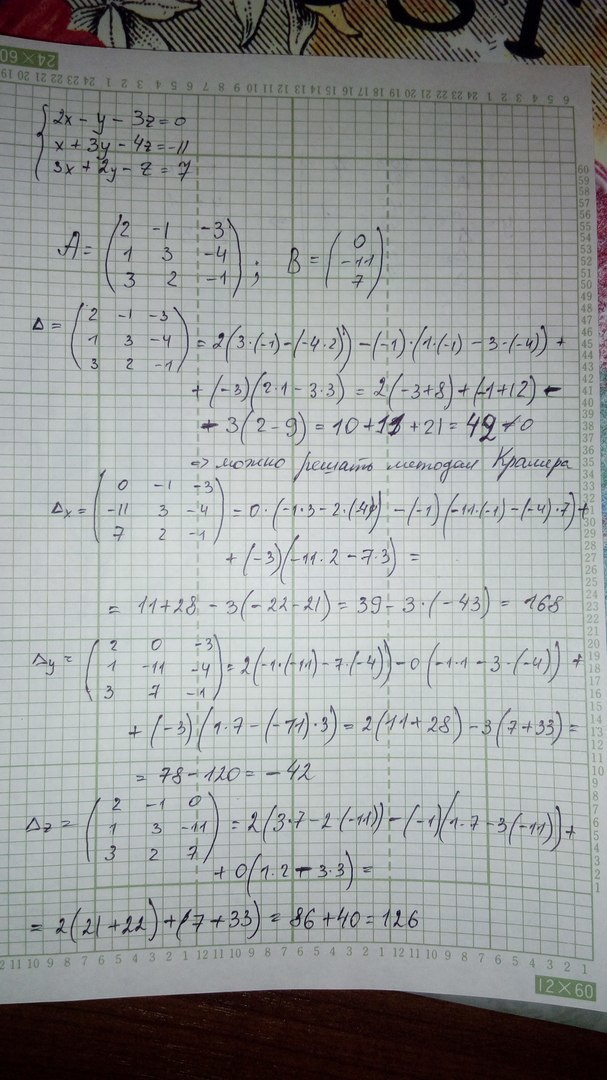 24×60
2x - y - 3z = 0
x + 3y - 4z = -11
3x + 2y - z = 7
A = (2 -1 -3
1 3 -4
3 2 -1) ; B = (0
-11
7)
Δ = (2 -1 -3
1 3 -4
3 2 -1) = 2(3·(-1) - (-4·2)) - (-1)·(1·(-1) - 3·(-4)) +
+ (-3)(2·1 - 3·3) = 2(-3+8) + (-1+12) -
- 3(2-9) = 10 + 11 + 21 = 42 ≠ 0
=> можно решать методом Крамера
Δx = (0 -1 -3
-11 3 -4
7 2 -1) = 0·(-1·3 - 2·(-4)) - (-1)(-11·(-1) - (-4)·7) +
+ (-3)(-11·2 - 7·3) =
= 11+28 - 3(-22-21) = 39 - 3·(-43) = 168
Δy = (2 0 -3
1 -11 -4
3 7 -1) = 2(-1·(-11) - 7·(-4)) - 0(-1·1 - 3·(-4)) +
+ (-3)(1·7 - (-11)·3) = 2(11+28) - 3(7+33) =
= 78 - 120 = -42
Δz = (2 -1 0
1 3 -11
3 2 7) = 2(3·7 - 2·(-11)) - (-1)(1·7 - 3(-11)) +
+ 0(1·2 - 3·3) =
= 2(21+22) + (7+33) = 86 + 40 = 126
12×60